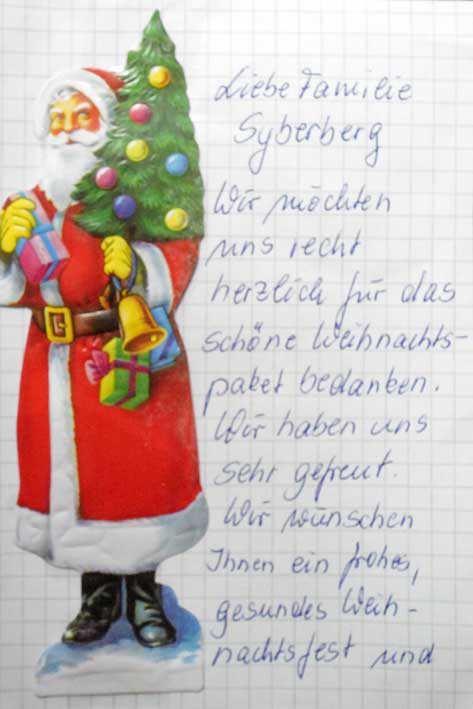 Liebe Familie
Syberberg
Wir möchten
uns recht
herzlich für das
schöne Weihnachts-
paket bedanken.
Wir haben uns
sehr gefreut.
Wir wünschen
Ihnen ein frohes,
gesundes Weih-
nachtsfest und